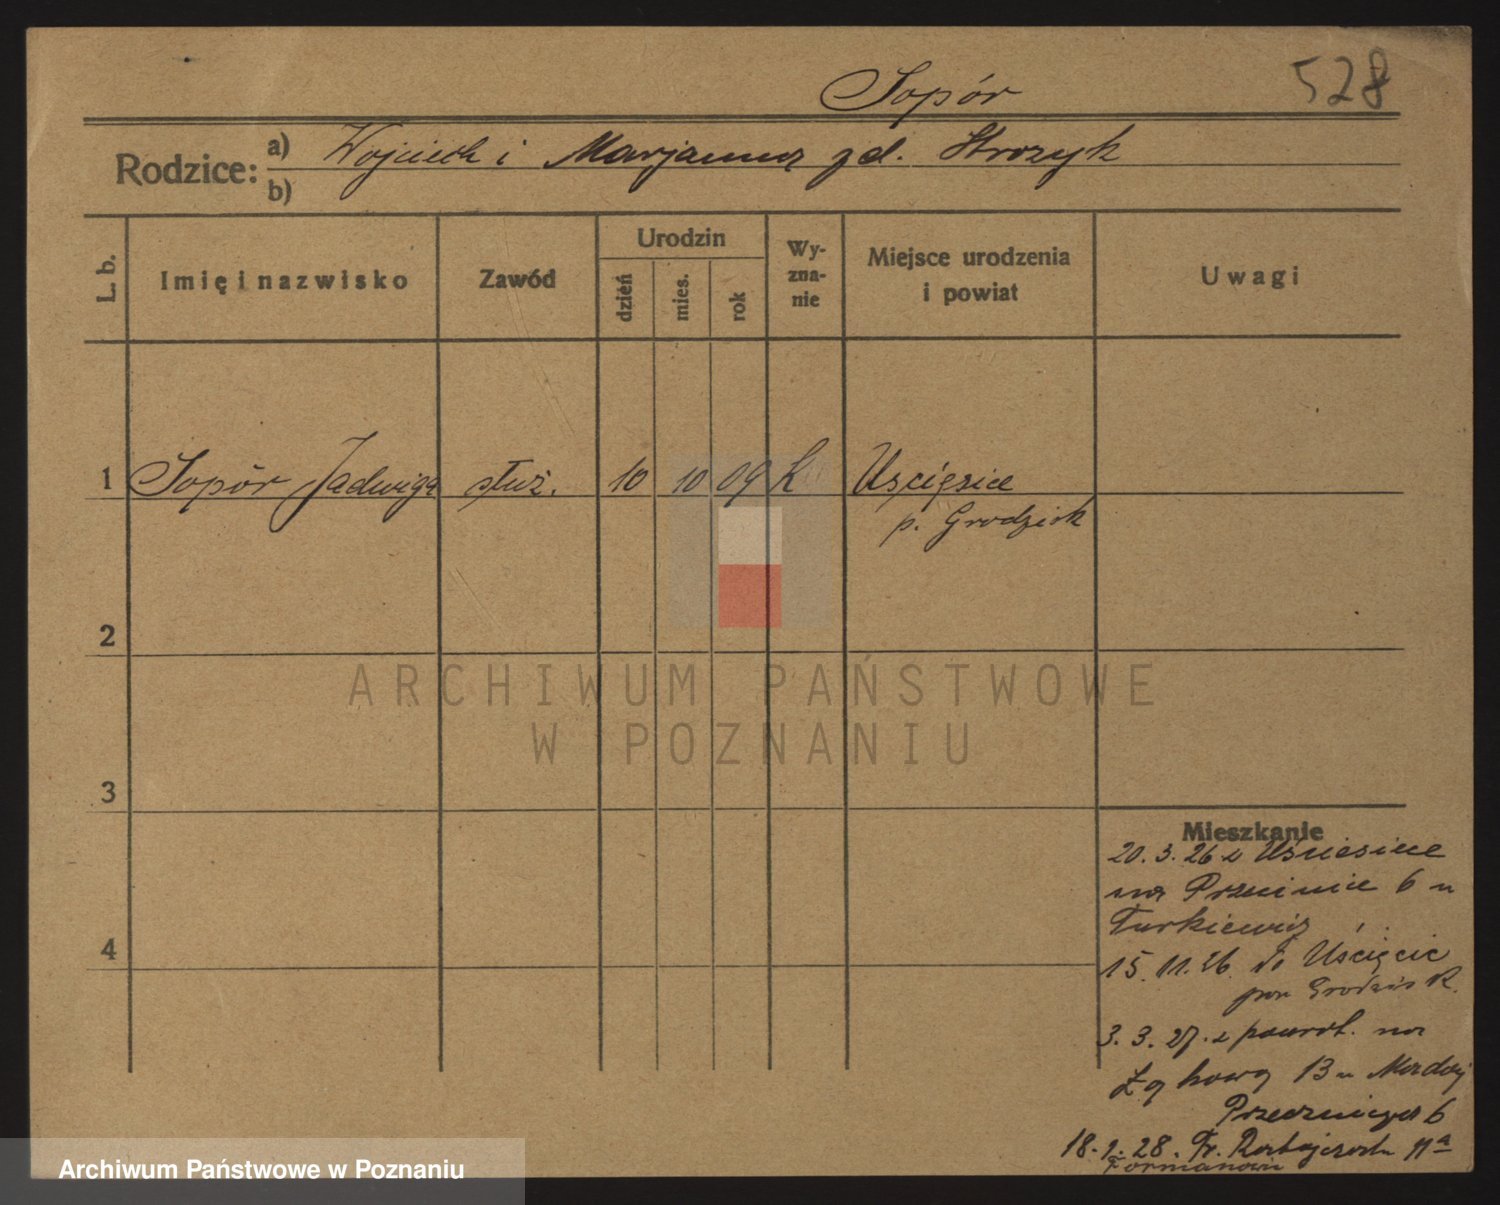 Sopór 528
Rodzice: a) Wojciech i Marjanna zd. Strozyk
b)
L. b. Imię i nazwisko Zawód Urodzin dzień mies. rok Wy-zna-nie Miejsce urodzenia i powiat Uwagi
1 Sopór Jadwiga służ. 10 10 09 k Uścięsice
p. Grodzisk
2
ARCHIWUM PAŃSTWOWE
W POZNANIU
3
Mieszkanie
20. 3. 26 z Uścięsice
na Przecznice 6 u
Turkiewicz
4
15. 11. 26. do Uścięcic
pow Grodzisk.
3. 3. 27. z powrot. na
Łąkową 13 u
Przecznica 6
18. 1. 28. Fr. Ratajczaka 11a
Formanowicz
Archiwum Państwowe w Poznaniu